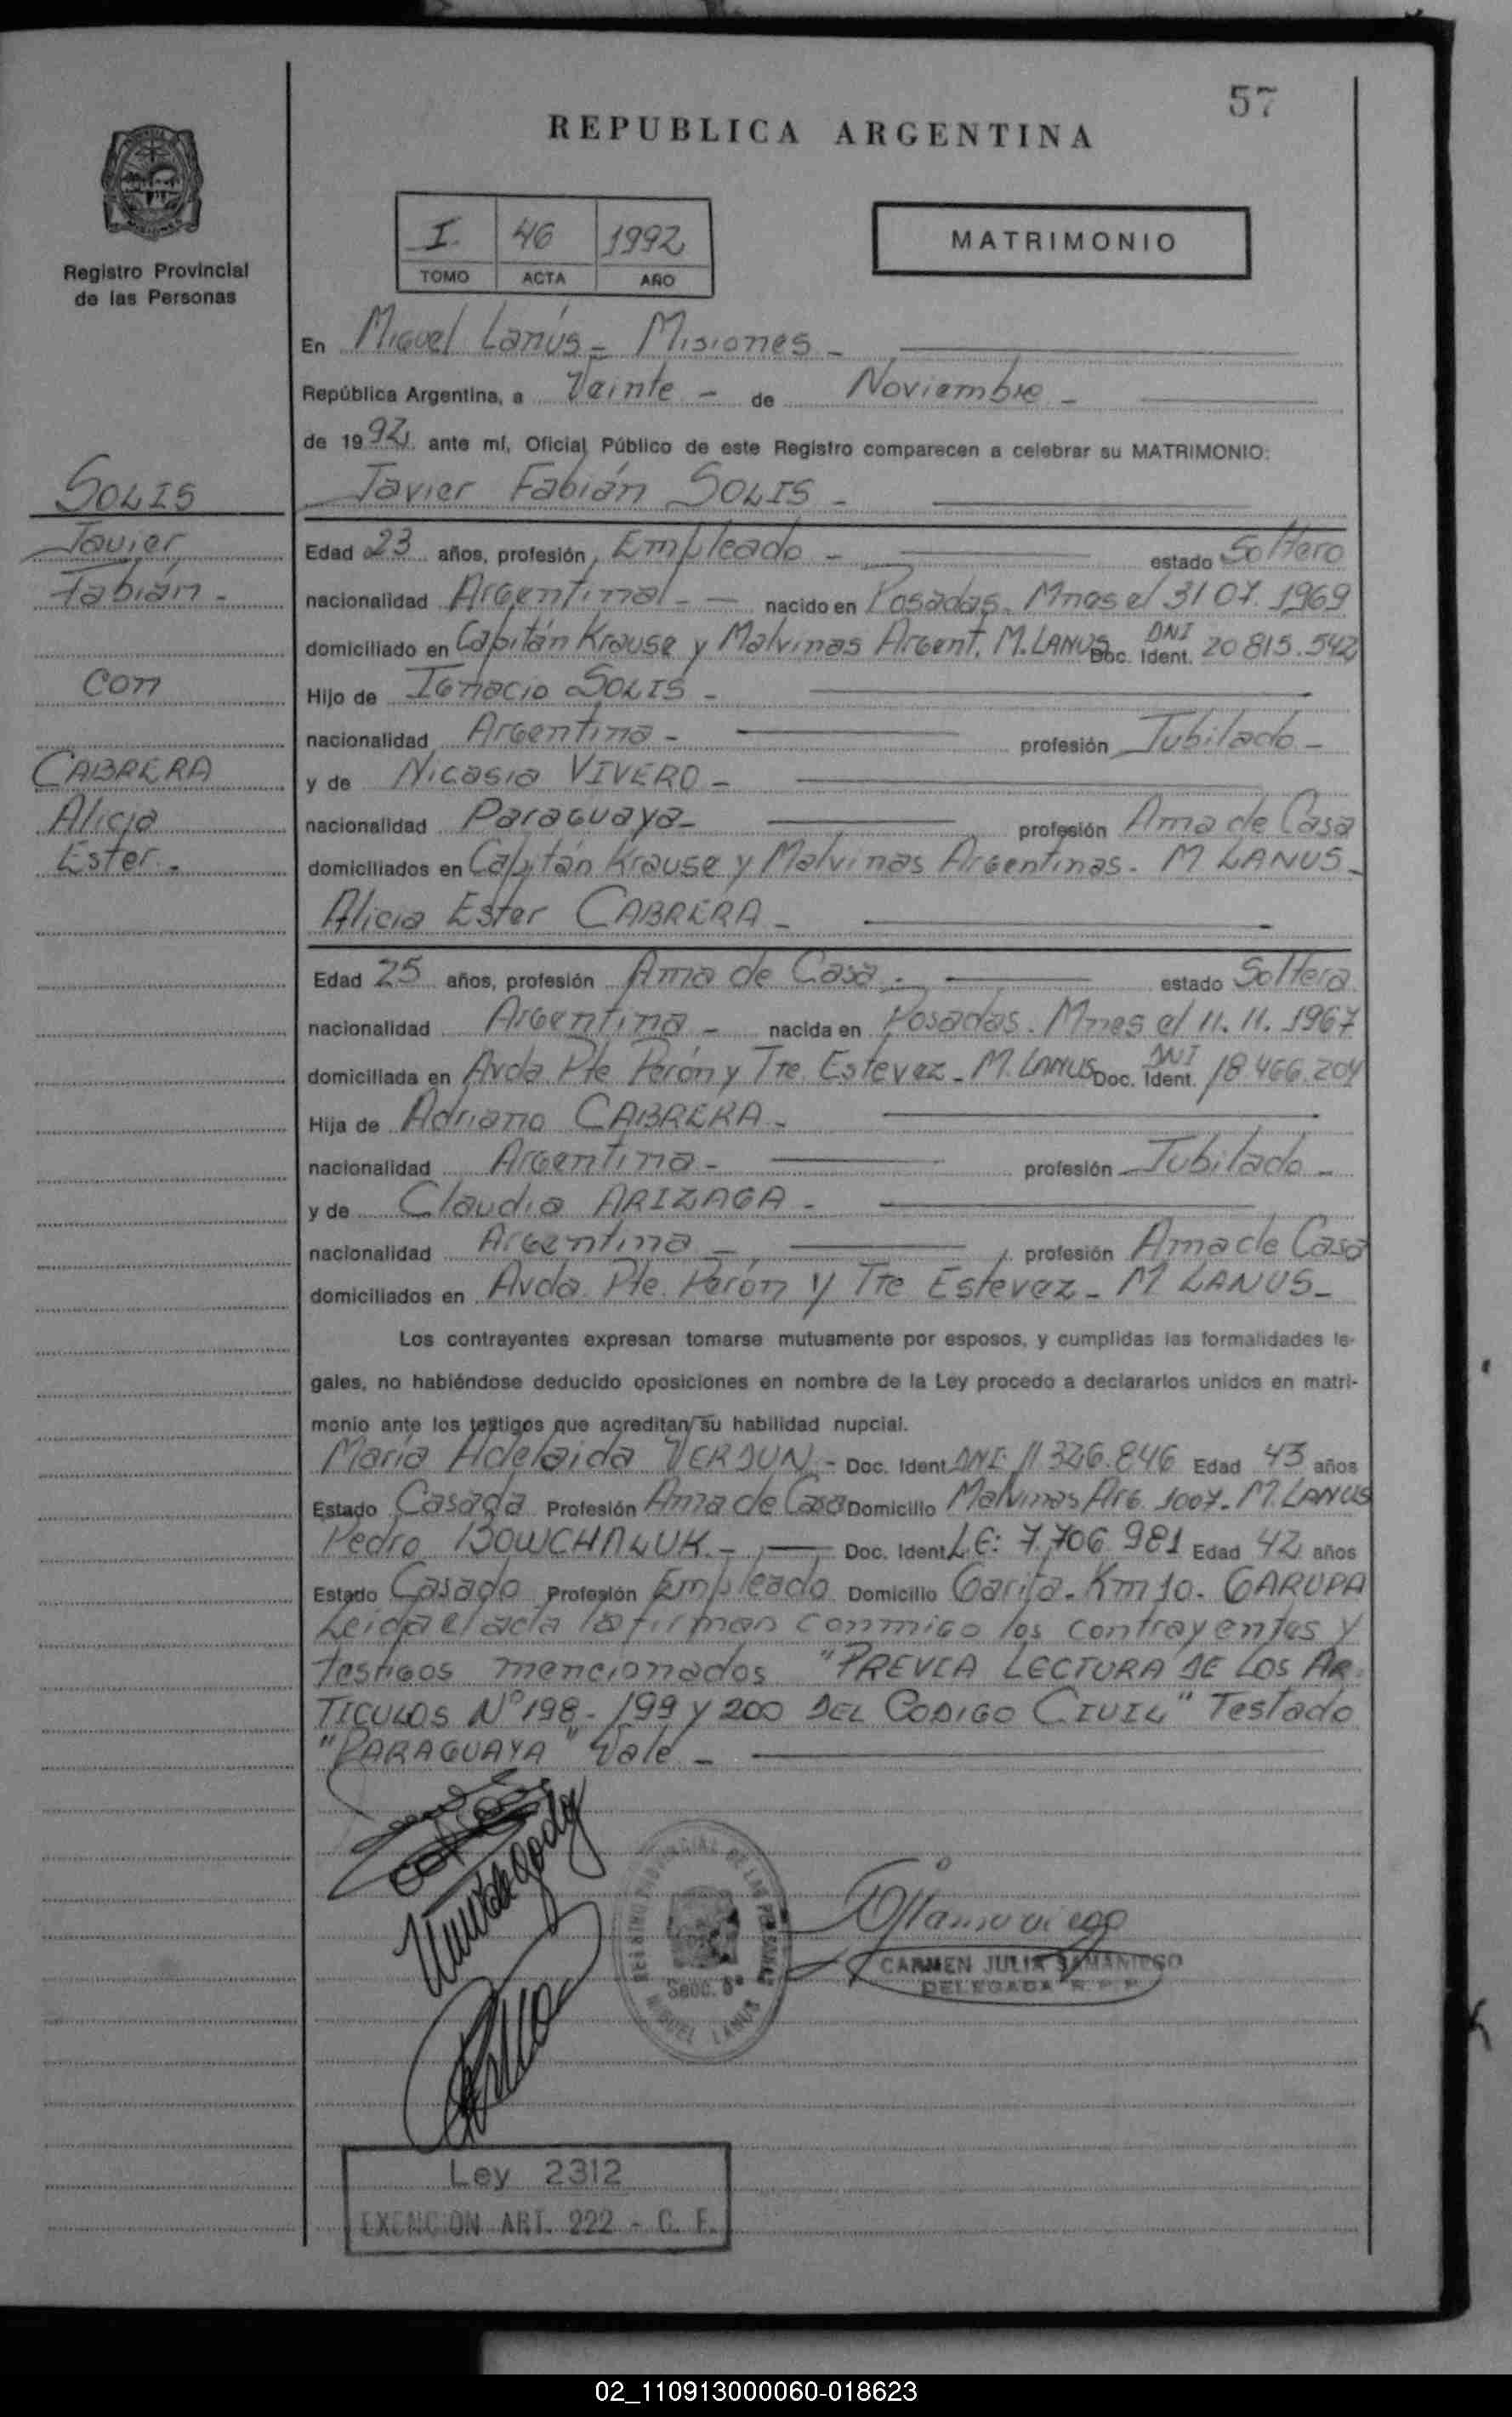 57
REPUBLICA ARGENTINA
I. 46 1992
TOMO ACTA AÑO
MATRIMONIO
Registro Provincial
de las Personas
En Miguel Lanús - Misiones -
República Argentina, a Veinte - de Noviembre -
de 1992 ante mí, Oficial Público de este Registro comparecen a celebrar su MATRIMONIO:
SOLIS
Javier
Fabián -
con
CABRERA
Alicia
Ester. -
Javier Fabián SOLIS -
Edad 23 años, profesión Empleado - estado Soltero
nacionalidad Argentina - nacido en Posadas. Mnes el 31 07. 1969
domiciliado en Capitán Krause y Malvinas Argent. M. LANUS Doc. Ident. DNI 20 815.542
Hijo de Ignacio SOLIS -
nacionalidad Argentina - profesión Jubilado -
y de Nicasia VIVERO -
nacionalidad Paraguaya - profesión Ama de Casa
domiciliados en Capitán Krause y Malvinas Argentinas - M LANUS -
Alicia Ester CABRERA -
Edad 25 años, profesión Ama de Casa - estado Soltera
nacionalidad Argentina - nacida en Posadas. Mnes el 11. 11. 1967
domiciliada en Avda Pte Perón y Tte. Estevez - M. LANUS Doc. Ident. DNI 18.466.204
Hija de Adriano CABRERA -
nacionalidad Argentina - profesión Jubilado -
y de Claudia ARIZAGA -
nacionalidad Argentina - profesión Ama de Casa
domiciliados en Avda. Pte. Perón y Tte Estevez - M LANUS -
Los contrayentes expresan tomarse mutuamente por esposos, y cumplidas las formalidades le-
gales, no habiéndose deducido oposiciones en nombre de la Ley procedo a declararlos unidos en matri-
monio ante los testigos que acreditan su habilidad nupcial.
María Adelaida VERDUN - Doc. Ident DNI 11 326.846 Edad 43 años
Estado Casada Profesión Ama de Casa Domicilio Malvinas Arg. 1007 - M. LANUS
Pedro BOWCHALUK - Doc. Ident L.E: 7.706.981 Edad 42 años
Estado Casado Profesión Empleado Domicilio Garita - Km 10 - GARUPA
Leída el acta la firman conmigo los contrayentes y
testigos mencionados "PREVIA LECTURA DE LOS AR-
TICULOS Nº 198 - 199 y 200 DEL CODIGO CIVIL" Testado
"PARAGUAYA" Vale -
REGISTRO PROVINCIAL DE LAS PERSONAS
Secc. 8ª
MIGUEL LANUS
CARMEN JULIA SAMANIEGO
DELEGADA R. P. P.
Ley 2312
EXENCION ART. 222 - C. F.
02_110913000060-018623